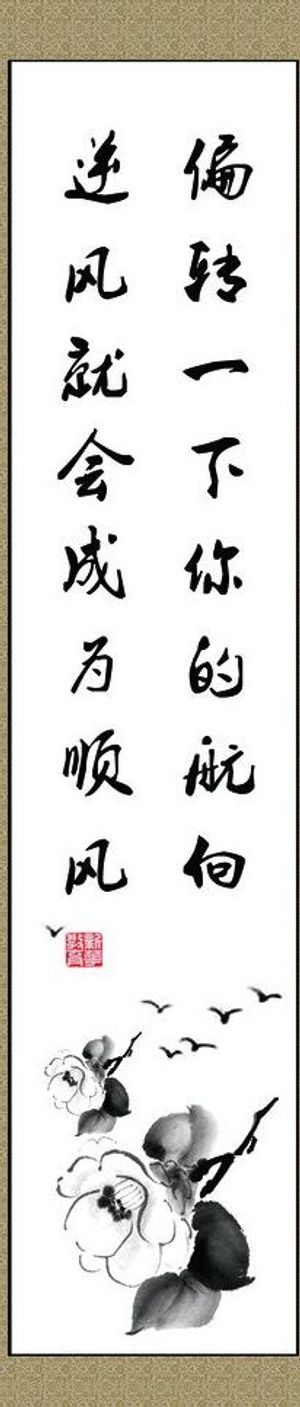 偏转一下你的航向
逆风就会成为顺风
新华教育